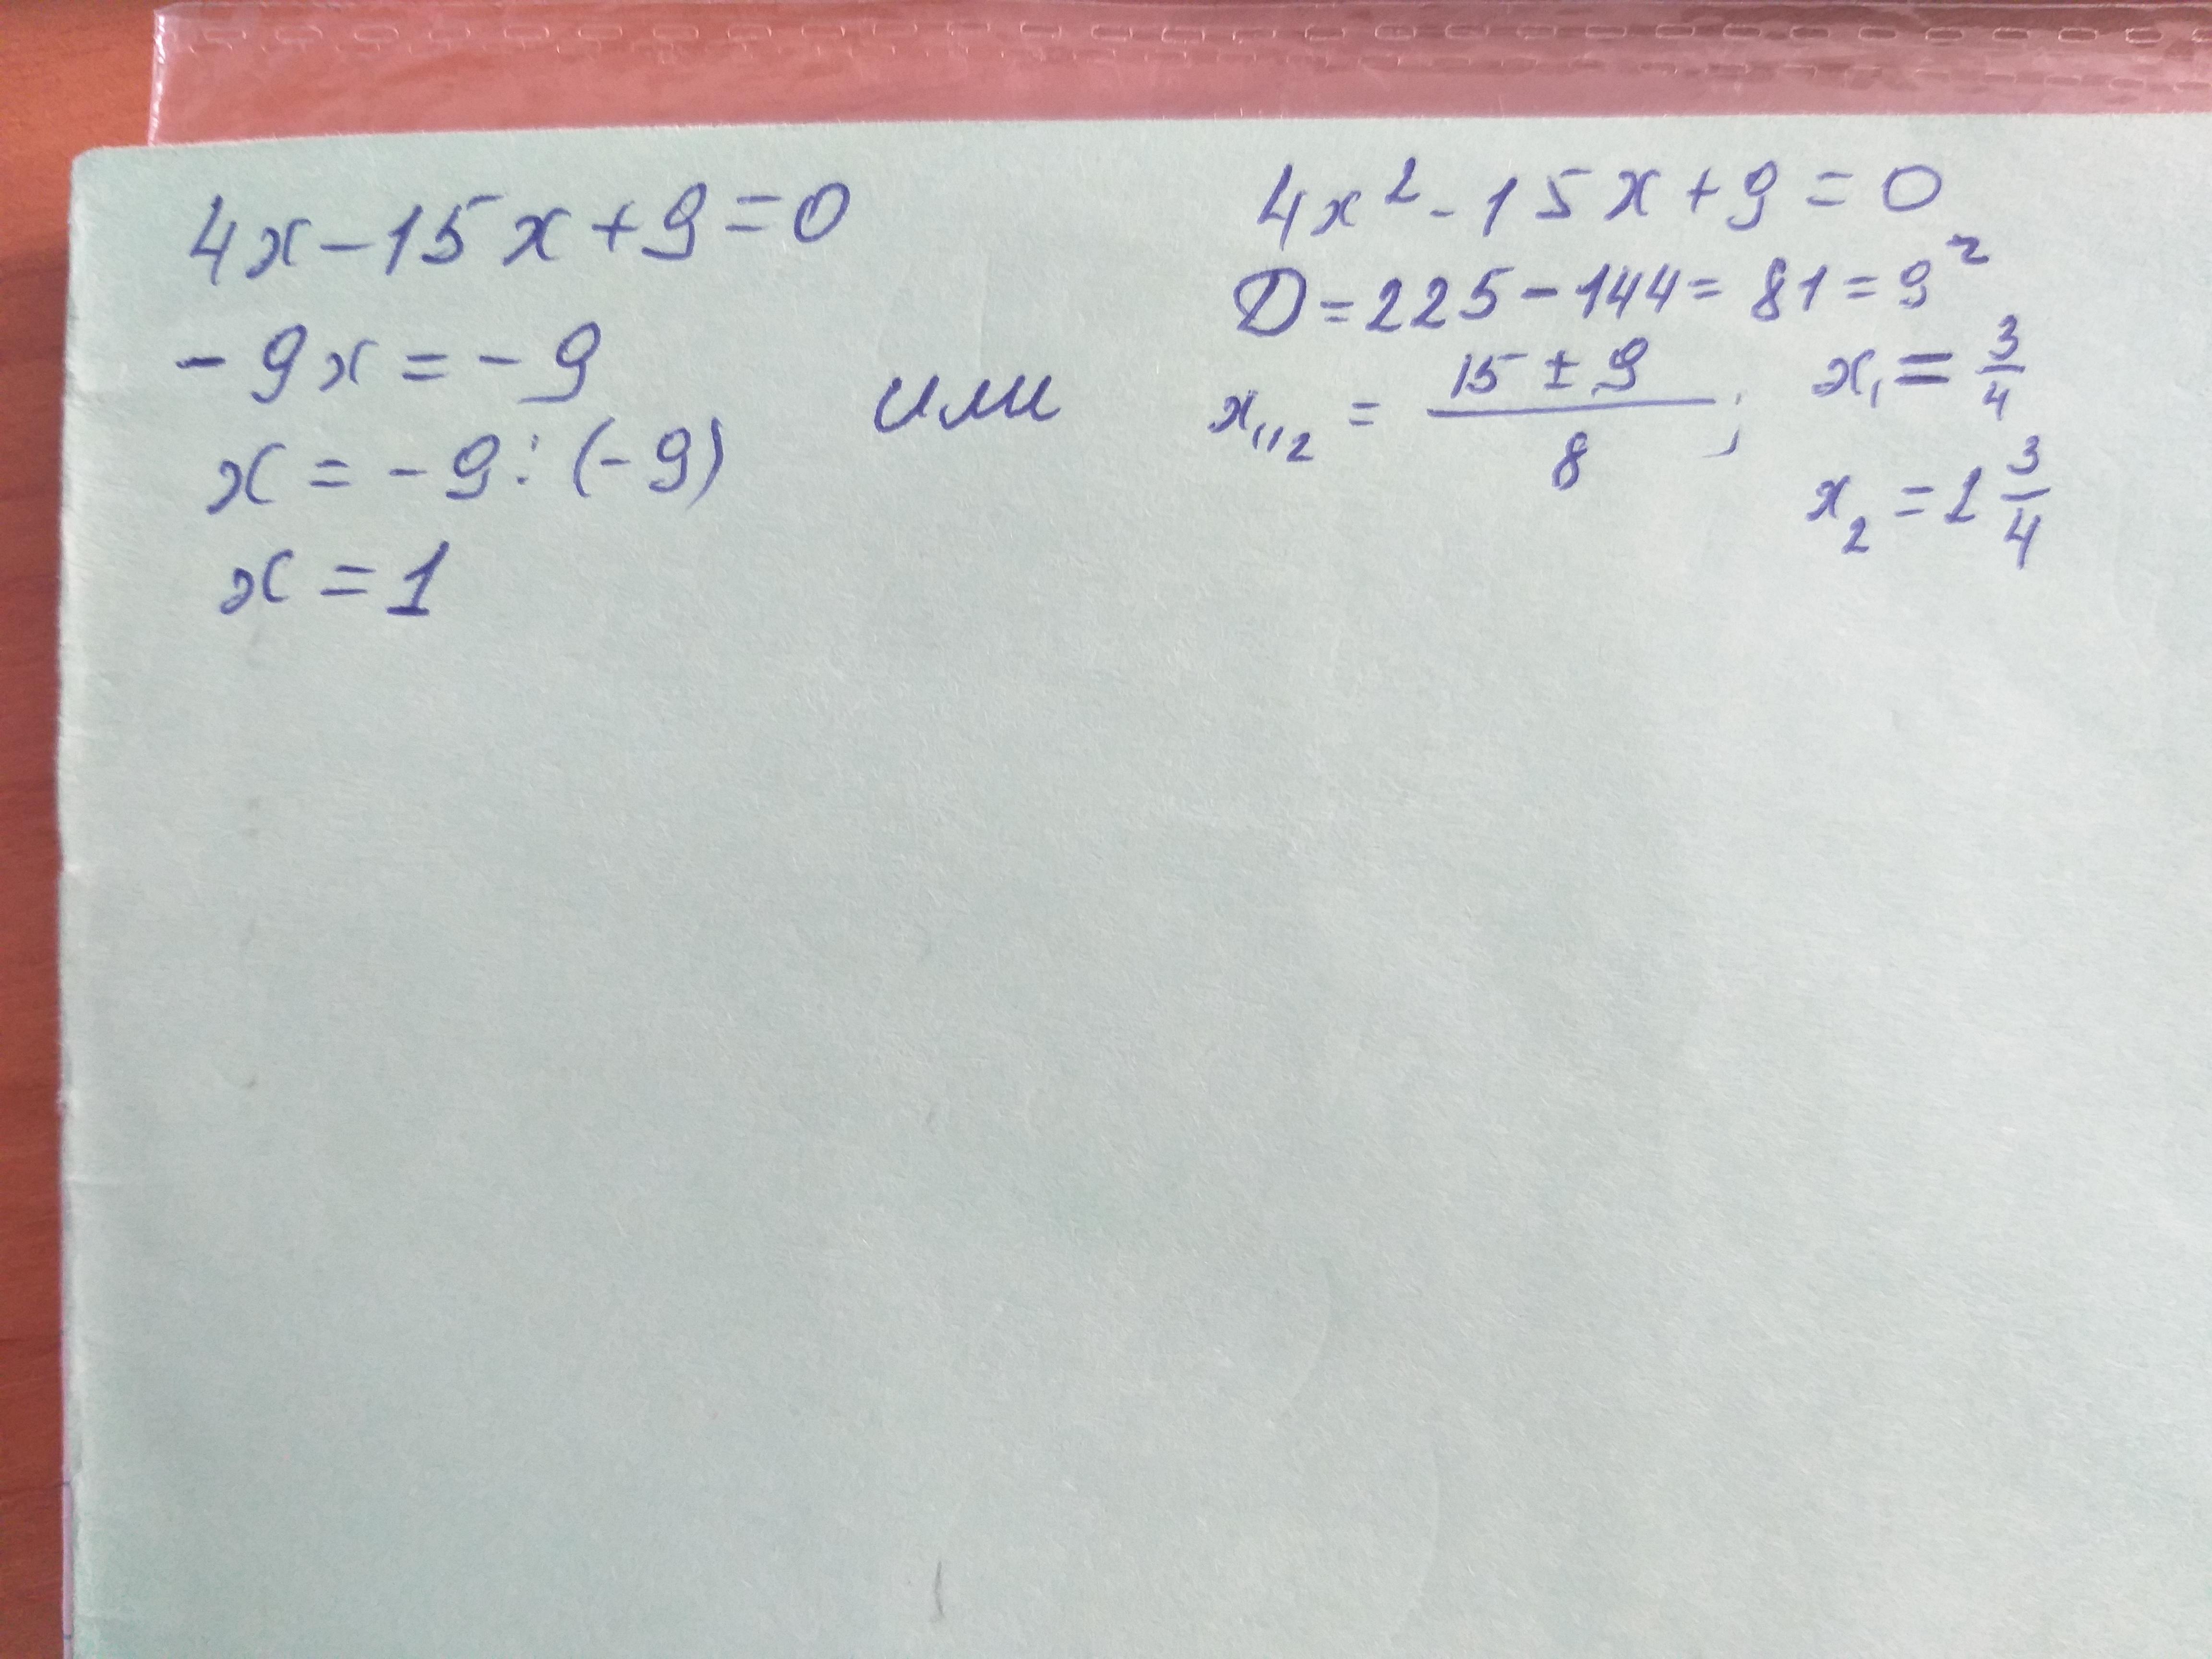 4x-15x+9=0
-9x=-9
x=-9:(-9)
x=1
или
4x²-15x+9=0
D=225-144=81=9²
x₁,₂ = (15±9)/8; x₁=3/4
x₂=1 3/4